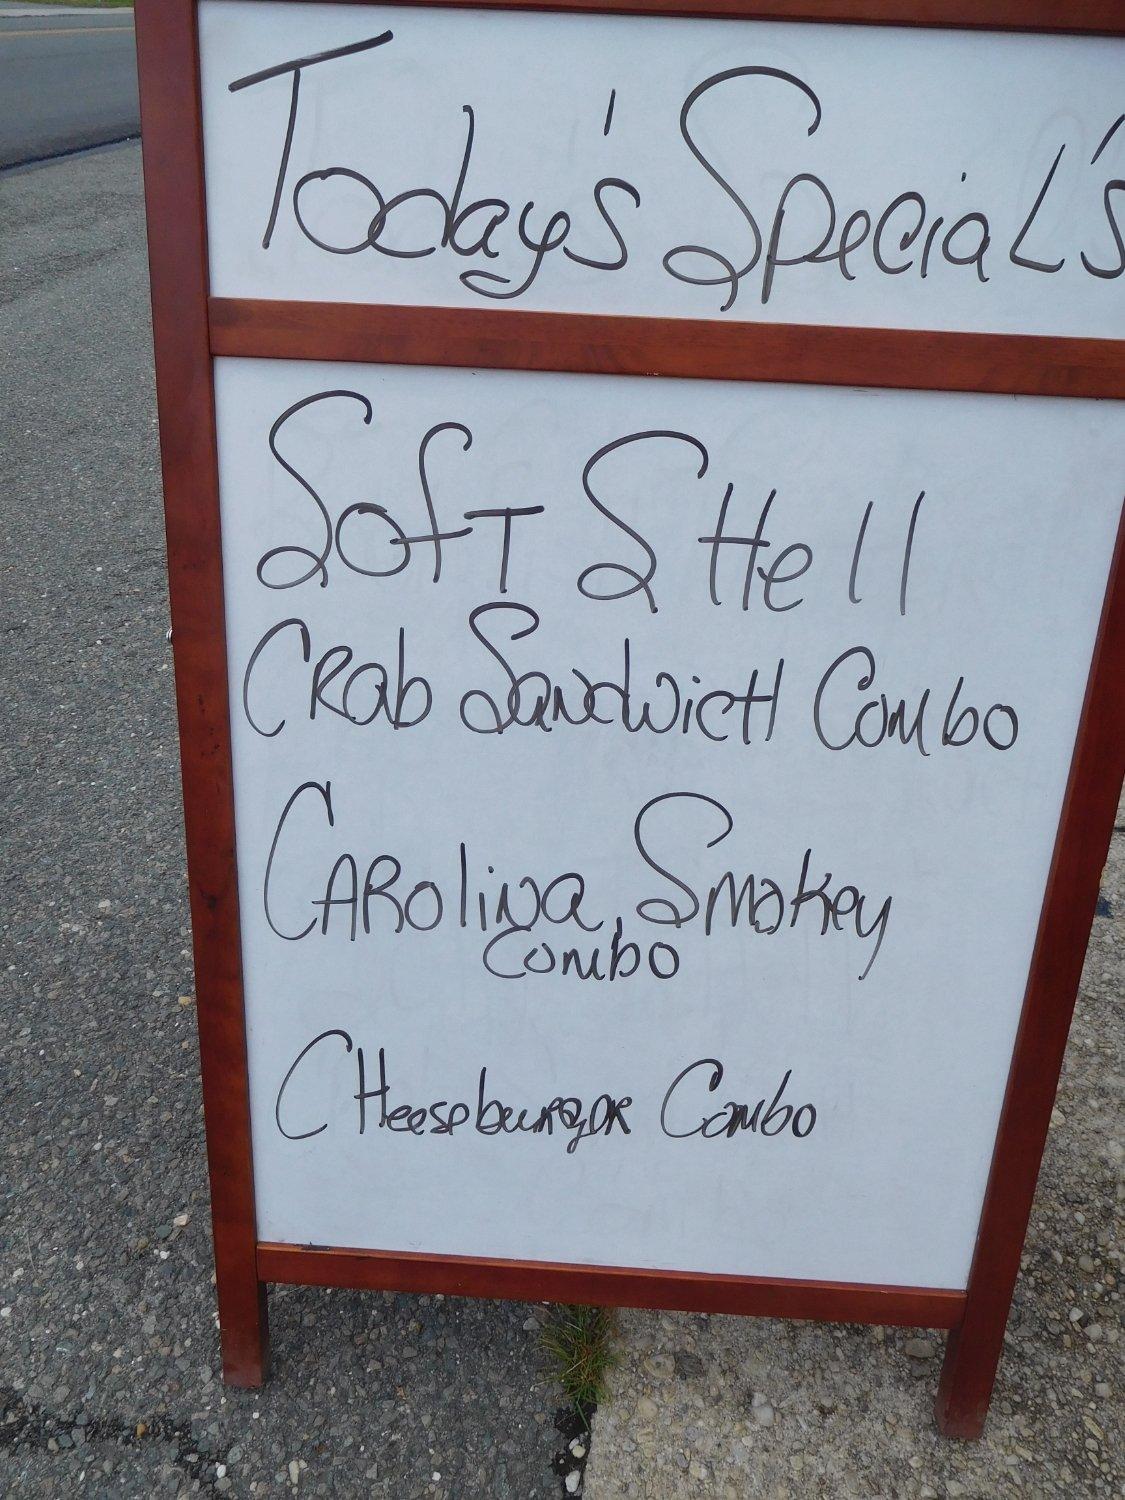 Today's Special's
Soft SHell
CRab SandwicH Combo
CARolina Smokey
Combo
CHeeseburgeR Combo